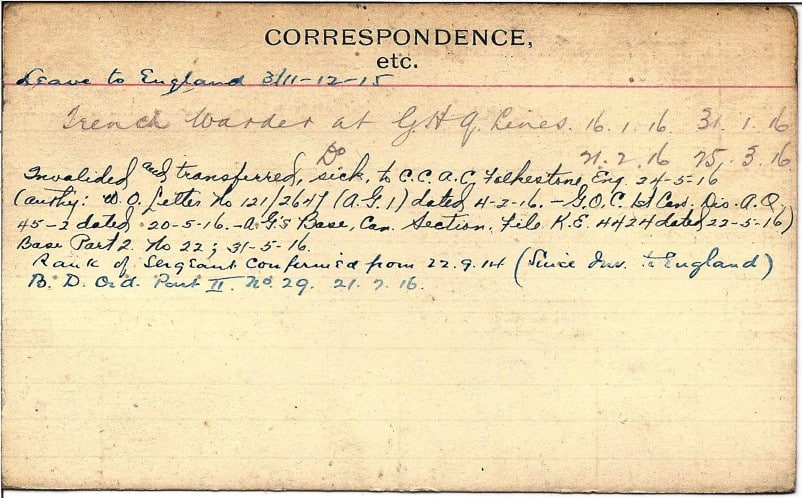 CORRESPONDENCE,
etc.
Leave to England 3/11-12-15
Trench Warder at G.H.Q. Lines. 16.1.16. 31.1.16
Do 21.2.16 25.3.16
Invalided and transferred, sick, to C.C.A.C. Folkestone, Eng. 24-5-16
(authy: W.O. Letter No 121/2647 (A.G.1) dated 4-2-16. - G.O.C. 1st Can. Div. A.Q.
45-2 dated 20-5-16. - A.G's Base, Can. Section, File K.E. 4424 dated 22-5-16)
Base Part 2 No 22; 31-5-16.
Rank of Sergeant confirmed from 22.9.14 (Since Inv. to England)
B.D. Ord. Part II. No. 29. 21.7.16.